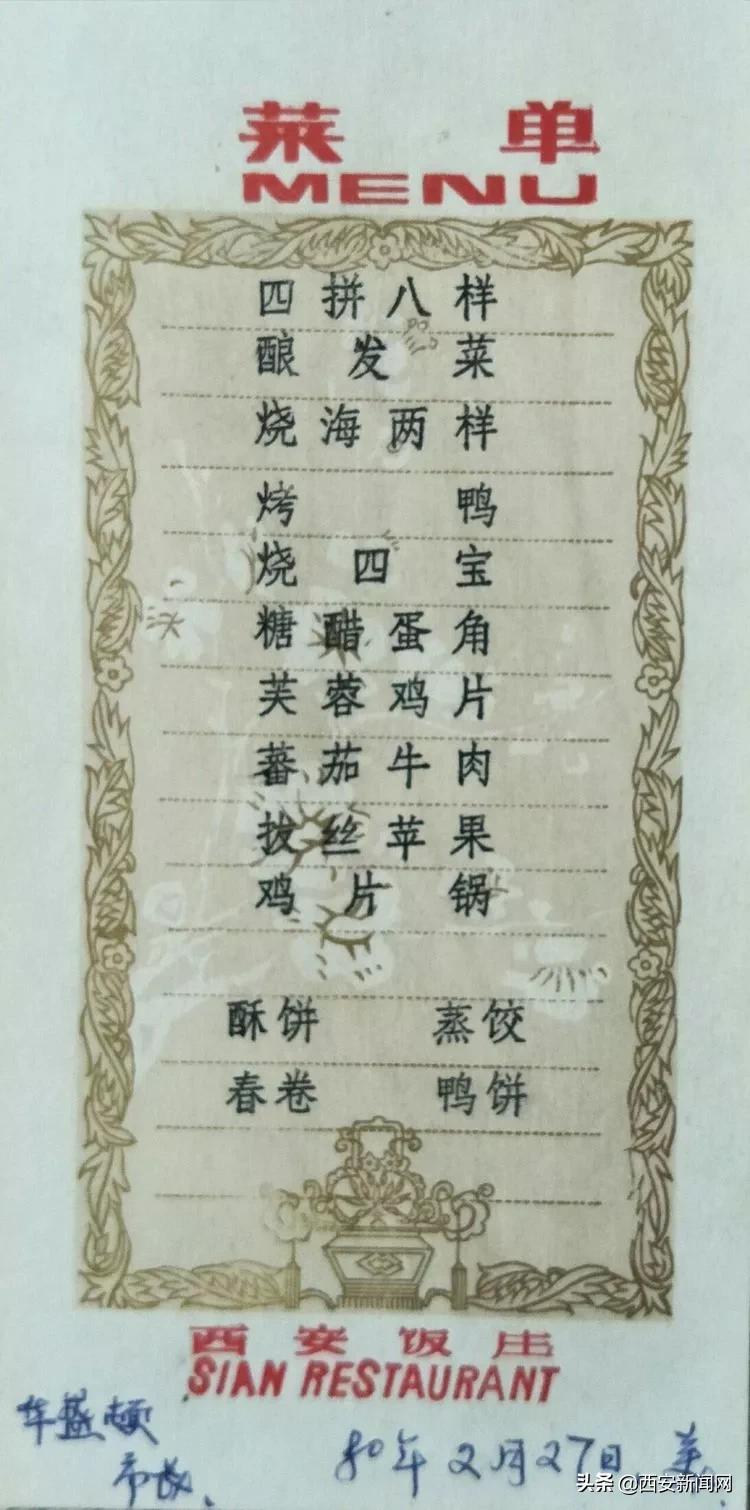 菜单
MENU
四拼八样
酿发菜
烧海两样
烤鸭
烧四宝
糖醋蛋角
芙蓉鸡片
蕃茄牛肉
拔丝苹果
鸡片锅
酥饼 蒸饺
春卷 鸭饼
西安饭庄
SIAN RESTAURANT
华盛顿
市长、
80年2月27日、美、
头条 @西安新闻网